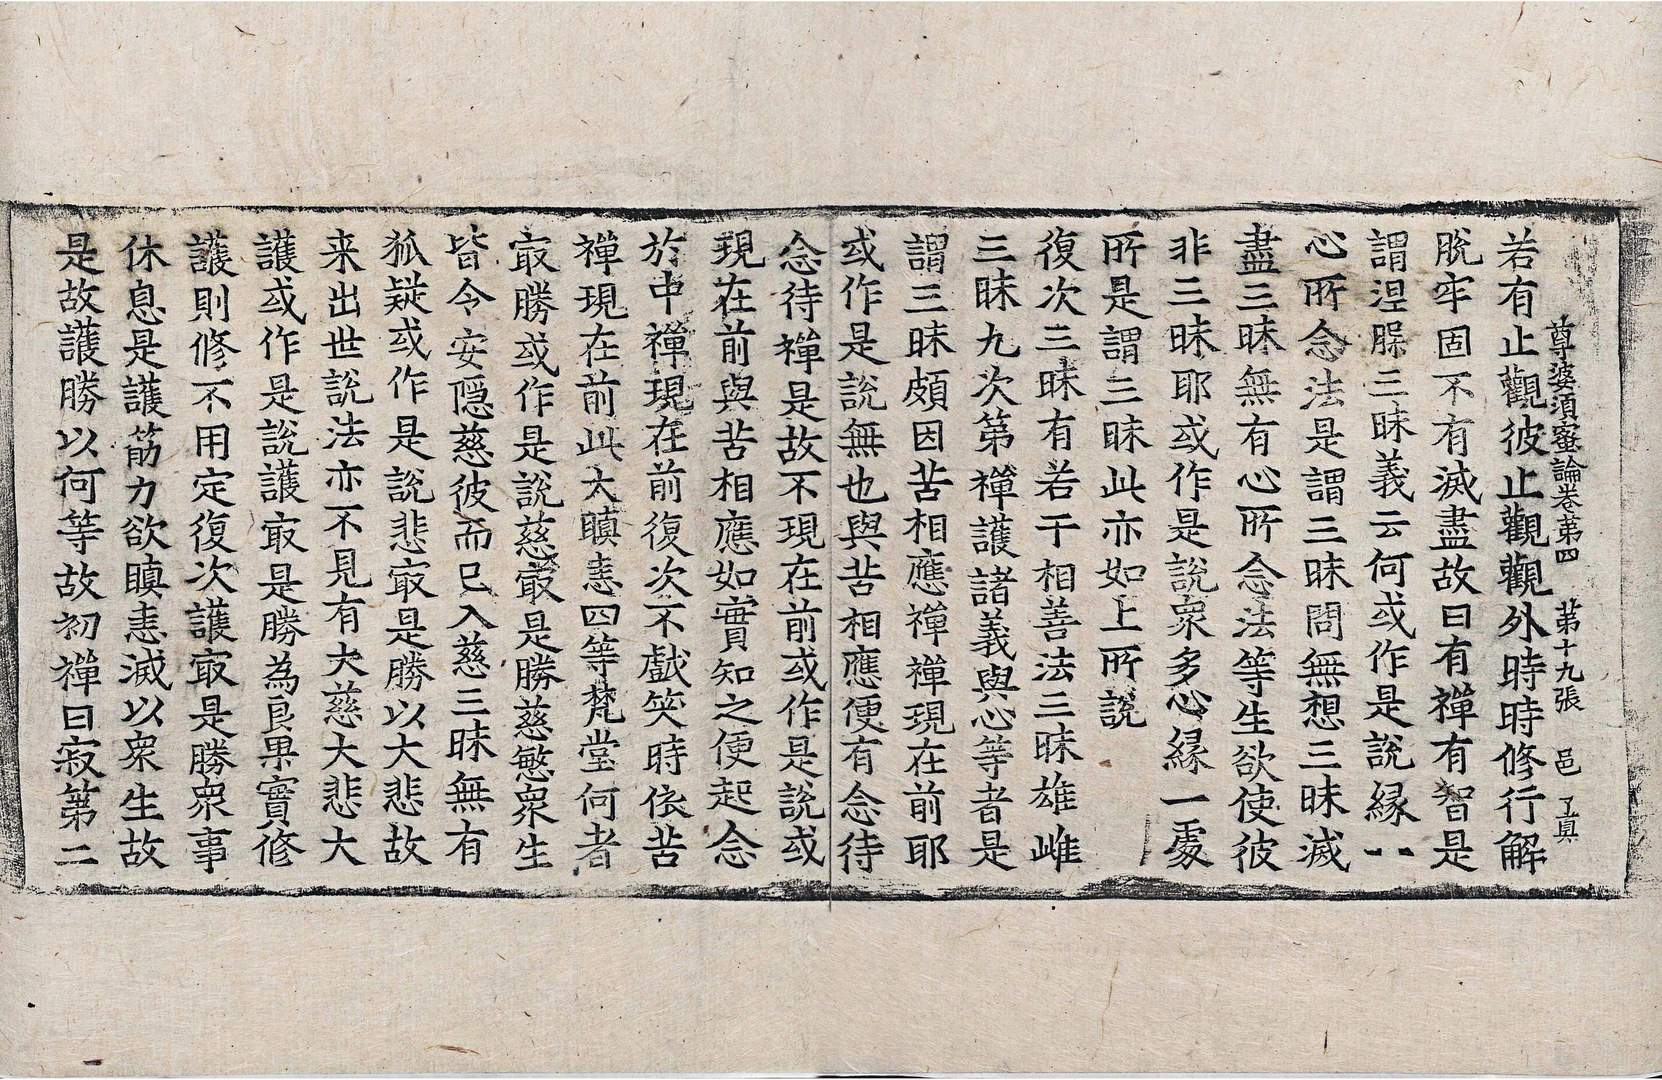 尊婆須蜜論卷第四　第十九張　邑　了真
若有止觀彼止觀觀外時時修行解
脫牢固不有滅盡故曰有禪有智是
謂涅槃三昧義云何或作是說緣一一
心所念法是謂三昧問無想三昧滅
盡三昧無有心所念法等生欲使彼
非三昧耶或作是說衆多心緣一處
所是謂三昧此亦如上所說
復次三昧有若干相善法三昧雄雌
三昧九次第禪護諸義與心等者是
謂三昧頗因苦相應禪禪現在前耶
或作是說無也與苦相應便有念待
念待禪是故不現在前或作是說或
現在前與苦相應如實知之便起念
於中禪現在前復次不戲笑時依苦
禪現在前此大瞋恚四等梵堂何者
㝡勝或作是說慈㝡是勝慈愍衆生
皆令安隱慈彼而已入慈三昧無有
狐疑或作是說悲㝡是勝以大悲故
来出世說法亦不見有大慈大悲大
護或作是說護㝡是勝為良果實修
護則修不用定復次護㝡是勝衆事
休息是護筋力欲瞋恚滅以衆生故
是故護勝以何等故初禪曰寂第二